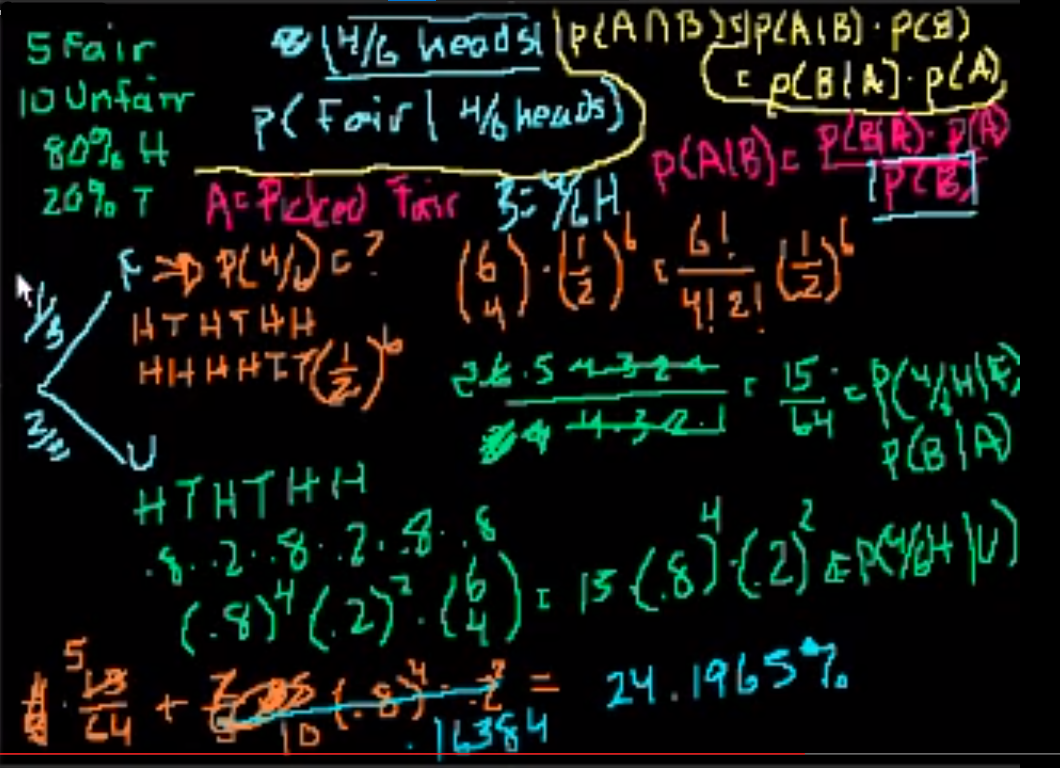 5 Fair
10 Unfair
80% H
20% T
4/6 heads
P(Fair | 4/6 heads)
P(A∩B) = P(A|B) · P(B)
= P(B|A) · P(A)
P(A|B) = P(B|A) · P(A) / P(B)
A = Picked Fair
B = 4/6 H
1/3
F ⇒ P(4/6) = ?
HTHTHH
HHHHTT (1/2)^6
(6 4) · (1/2)^6 = 6!/4!2! (1/2)^6
6·5·4·3·2·1
4·3·2·1
= 15/64 = P(4/6H|F)
P(B|A)
2/3
U
HTHTHH
.8 · .2 · .8 · .2 · .8 · .8
(.8)^4 (.2)^2 · (6 4) = 15 (.8)^4 · (.2)^2 = P(4/6H|U)
5
64
+
10 (.8)^4 · .2^2 =
.16384
24.1965%